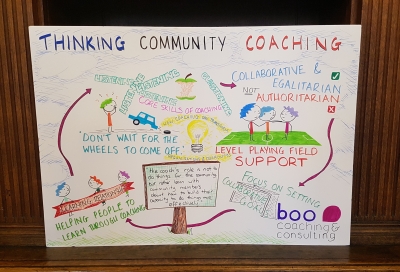 THINKING COMMUNITY COACHING
COLLABORATIVE &
EGALITARIAN
NOT
AUTHORITARIAN
CORE SKILLS OF COACHING
'DON'T WAIT FOR THE
WHEELS TO COME OFF.'
LEVEL PLAYING FIELD
SUPPORT
The coach's role is not to
do things for the community
but rather learn with
community members
about how to build their
capacity to do things more
effectively
FOCUS ON SETTING
GOALS
LEARNING
HELPING PEOPLE TO
LEARN THROUGH COACHING
boo
coaching &
consulting